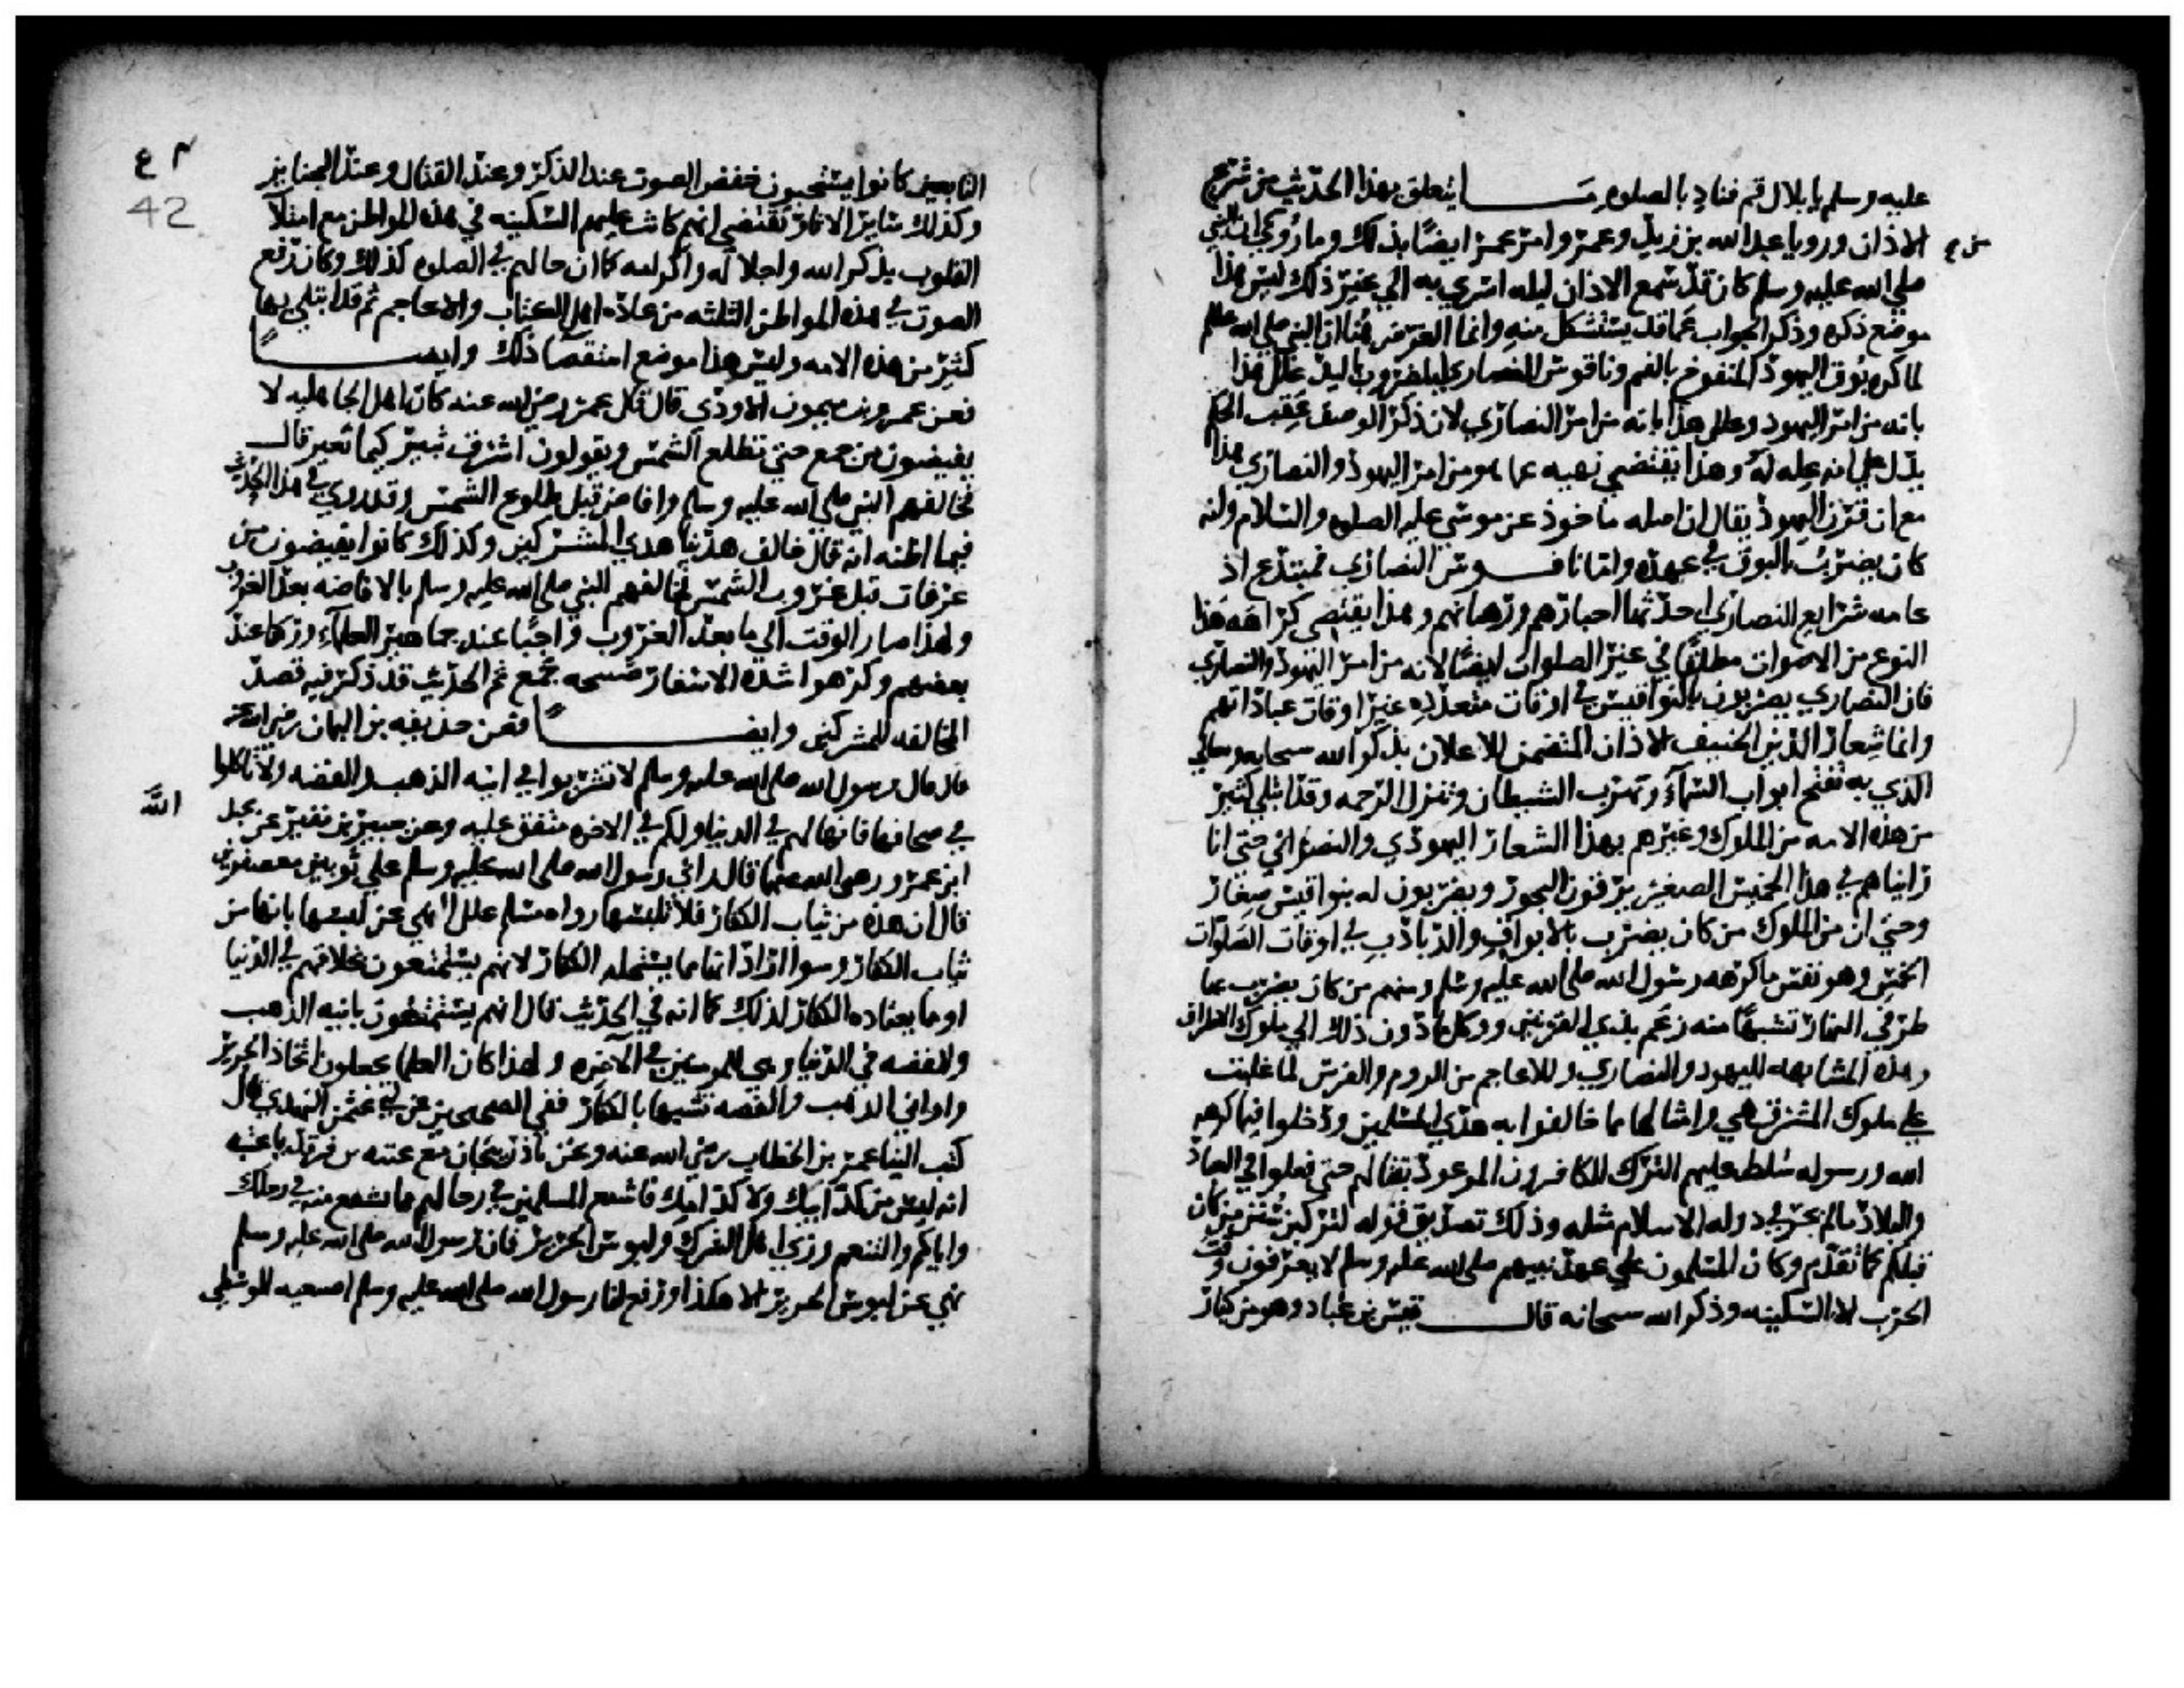 عليه وسلم يا بلال قم فناد بالصلوه ما يتعلق بهذا الحديث من شرع
الاذان ورويا عبد الله بن زيد وعمر وامر عمر ايضا بذلك وما روي ان النبي
صلي الله عليه وسلم كان قد سمع الاذان ليله اسري به الي غير ذلك ليس هذا
موضع ذكره وذكر الجواب عما قد يستشكل منه وانما الغرض هنا ان النبي صلي الله عليه وسلم
لما كره بوق اليهود المنفوخ بالفم وناقوس النصاري المضروب باليد علل هذا
بانه من امر اليهود وعلل هذا بانه من امر النصاري لان ذكر الوصف عقب الحكم
يدل علي انه عله له وهذا يقتضي نهيه عما هو من امر اليهود والنصاري هذا
مع ان قرن اليهود يقال ان اصله ماخوذ عن موسي عليه الصلوه والسلام وانه
كان يضرب بالبوق في عهده واما ناقوس النصاري فمبتدع اذ
عامه شرايع النصاري احدثها احبارهم ورهبانهم وهذا يقتضي كراهه هذا
النوع من الاصوات مطلقا في غير الصلوات ايضا لانه من امر اليهود والنصاري
فان النصاري يضربون بالنواقيس في اوقات متعدده غير اوقات عباداتهم
وانما شعار الدين الحنيف الاذان المتضمن للاعلان بذكر الله سبحانه وتعالي
الذي به تفتح ابواب السماء وتهرب الشيطان وتنزل الرحمه وقد ابتلي كثير
من هذه الامه من الملوك وغيرهم بهذا الشعار اليهودي والنصراني حتي انا
رايناهم في هذا الخميس الصغير يزفون البخور ويضربون له بنواقيس صغار
وحتي ان من الملوك من كان يضرب بالابواق والدبادب في اوقات الصلوات
الخمس وهو نفس ما كرهه رسول الله صلي الله عليه وسلم ومنهم من كان يضرب بها
طرفي النهار تشبها منه زعم بذي القرنين ووكل ما دون ذلك الي ملوك الاطراف
وهذه المشابهه لليهود والنصاري وللاعاجم من الروم والفرس لما غلبت
علي ملوك المشرق هي وامثالها مما خالفوا به هدي المسلمين ودخلوا فيما كرهه
الله ورسوله سلط عليهم الترك الكافرون الموعود بقتالهم حتي فعلوا في العباد
والبلاد ما لم يجر في دوله الاسلام مثله وذلك تصديق قوله لتركبن سنن من كان
قبلكم كما تقدم وكان المسلمون علي عهد نبيهم صلي الله عليه وسلم لا يعرفون وقت
الحرب الا السكينه وذكر الله سبحانه قال قيس بن عباد وهو من كبار
٤٢
42
التابعين كانوا يستحبون خفض الصوت عند الذكر وعند القتال وعند الجنايز
وكذلك ساير الاثار تقتضي انهم كانت عليهم السكينه في هذه المواطن مع امتلا
القلوب بذكر الله واجلاله واكرامه كما ان حالهم في الصلوه كذلك وكان رفع
الصوت في هذه المواطن الثلثه من عاده اهل الكتاب والاعاجم ثم قد ابتلي بها
كثير من هذه الامه وليس هذا موضع استقصا ذلك وايضا
فعن عمرو بن ميمون الاودي قال قال عمر رضي الله عنه كان اهل الجاهليه لا
يفيضون من جمع حتي تطلع الشمس ويقولون اشرق ثبير كيما نغير قال
فخالفهم النبي صلي الله عليه وسلم وافاض قبل طلوع الشمس وقد روي في هذا الحديث
فيما اظنه انه قال خالف هدينا هدي المشركين وكذلك كانوا يفيضون من
عرفات قبل غروب الشمس فخالفهم النبي صلي الله عليه وسلم بالافاضه بعد الغروب
ولهذا صار الوقوف الي ما بعد الغروب واجبا عند جماهير العلماء وركنا عند
بعضهم وكرهوا شده الاسفار صبيحه جمع ثم الحديث قد ذكر فيه قصد
المخالفه للمشركين وايضا فعن حذيفه بن اليمان رضي الله عنه
قال قال رسول الله صلي الله عليه وسلم لا تشربوا في انيه الذهب والفضه ولا تاكلوا
في صحافها فانها لهم في الدنيا ولكم في الاخره متفق عليه وعن جبير بن نفير عن عبد
الله
ابن عمرو رضي الله عنهما قال راي رسول الله صلي الله عليه وسلم علي ثوبين معصفرين
قال ان هذه من ثياب الكفار فلا تلبسها رواه مسلم علل النهي عن لبسها بانها من
ثياب الكفار وسوا اراد انها مما يستحله الكفار لانهم يستمتعون بخلاقهم في الدنيا
او مما يعتاده الكفار لذلك كما انه في الحديث قال انهم يستمتعون بانيه الذهب
والفضه في الدنيا وهي للمومنين في الاخره ولهذا كان العلما يجعلون اتخاذ الحرير
واواني الذهب والفضه تشبها بالكفار ففي الصحيحين عن ابي عثمن النهدي قال
كتب الينا عمر بن الخطاب رضي الله عنه ونحن باذربيجان مع عتبه بن فرقد يا عتبه
انه ليس من كد ابيك ولا كد امك فاشبع المسلمين في رحالهم مما تشبع منه في رحلك
واياكم والتنعم وزي اهل الشرك ولبوس الحرير فان رسول الله صلي الله عليه وسلم
نهي عن لبوس الحرير الا هكذا ورفع لنا رسول الله صلي الله عليه وسلم اصبعيه الوسطي